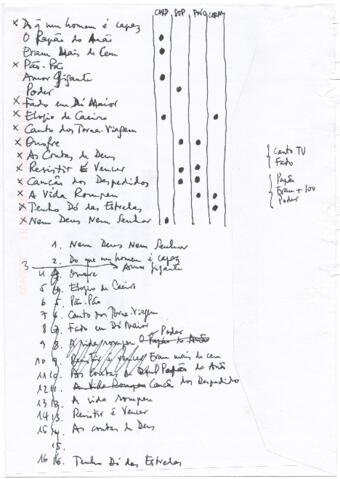 x Do q um homem é capaz
O Patrão do Anão
Eram Mais de Cem
x Pão-Pão
Amor Gigante
Poder
x Fado em Dó Maior
x Elogio de Caeiro
x Canto dos Torna-Viagem
x Onofre
x As Contas de Deus
x Resistir É Vencer
x Canção dos Despedidos
x A Vida Rompeu
x Tenho Dó das Estrelas
x Nem Deus Nem Senhor
Canto TV
Fado
Eram + 100
Poder
1. Nem Deus Nem Senhor
2. Do que um homem é capaz
3 Amor gigante
4 Onofre
5 Elogio de Caeiro
6 5. Pão-Pão
7 6. Canto dos Torna-Viagem
8 Fado em Dó Maior
9 8. A vida rompeu Poder
10 9. Resistir é vencer Eram mais de cem
11 10. As contas de do Anão
12 11. A Vida Rompeu Canção dos Despedidos
13 A vida rompeu
14 13. Resistir é Vencer
15 14. As contas de Deus
15.
16 16. Tenho Dó das Estrelas